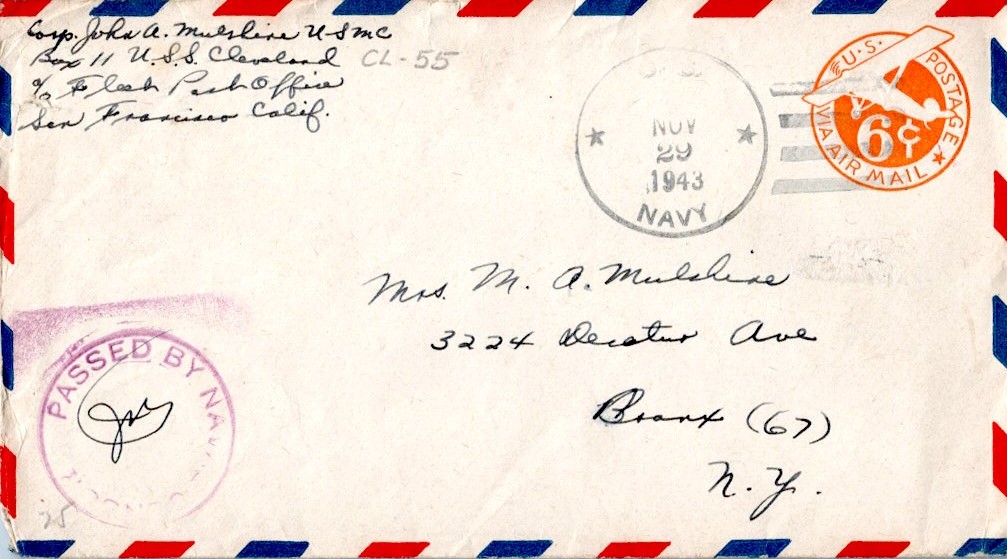 Corp. John A. Mulshine USMC
Box 11 U.S.S. Cleveland CL-55
c/o Fleet Post Office
San Francisco Calif.
NOV
29
1943
NAVY
U.S. POSTAGE
6¢
VIA AIR MAIL
Mrs. M. A. Mulshine
3224 Decatur Ave
Bronx (67)
N.Y.
PASSED BY